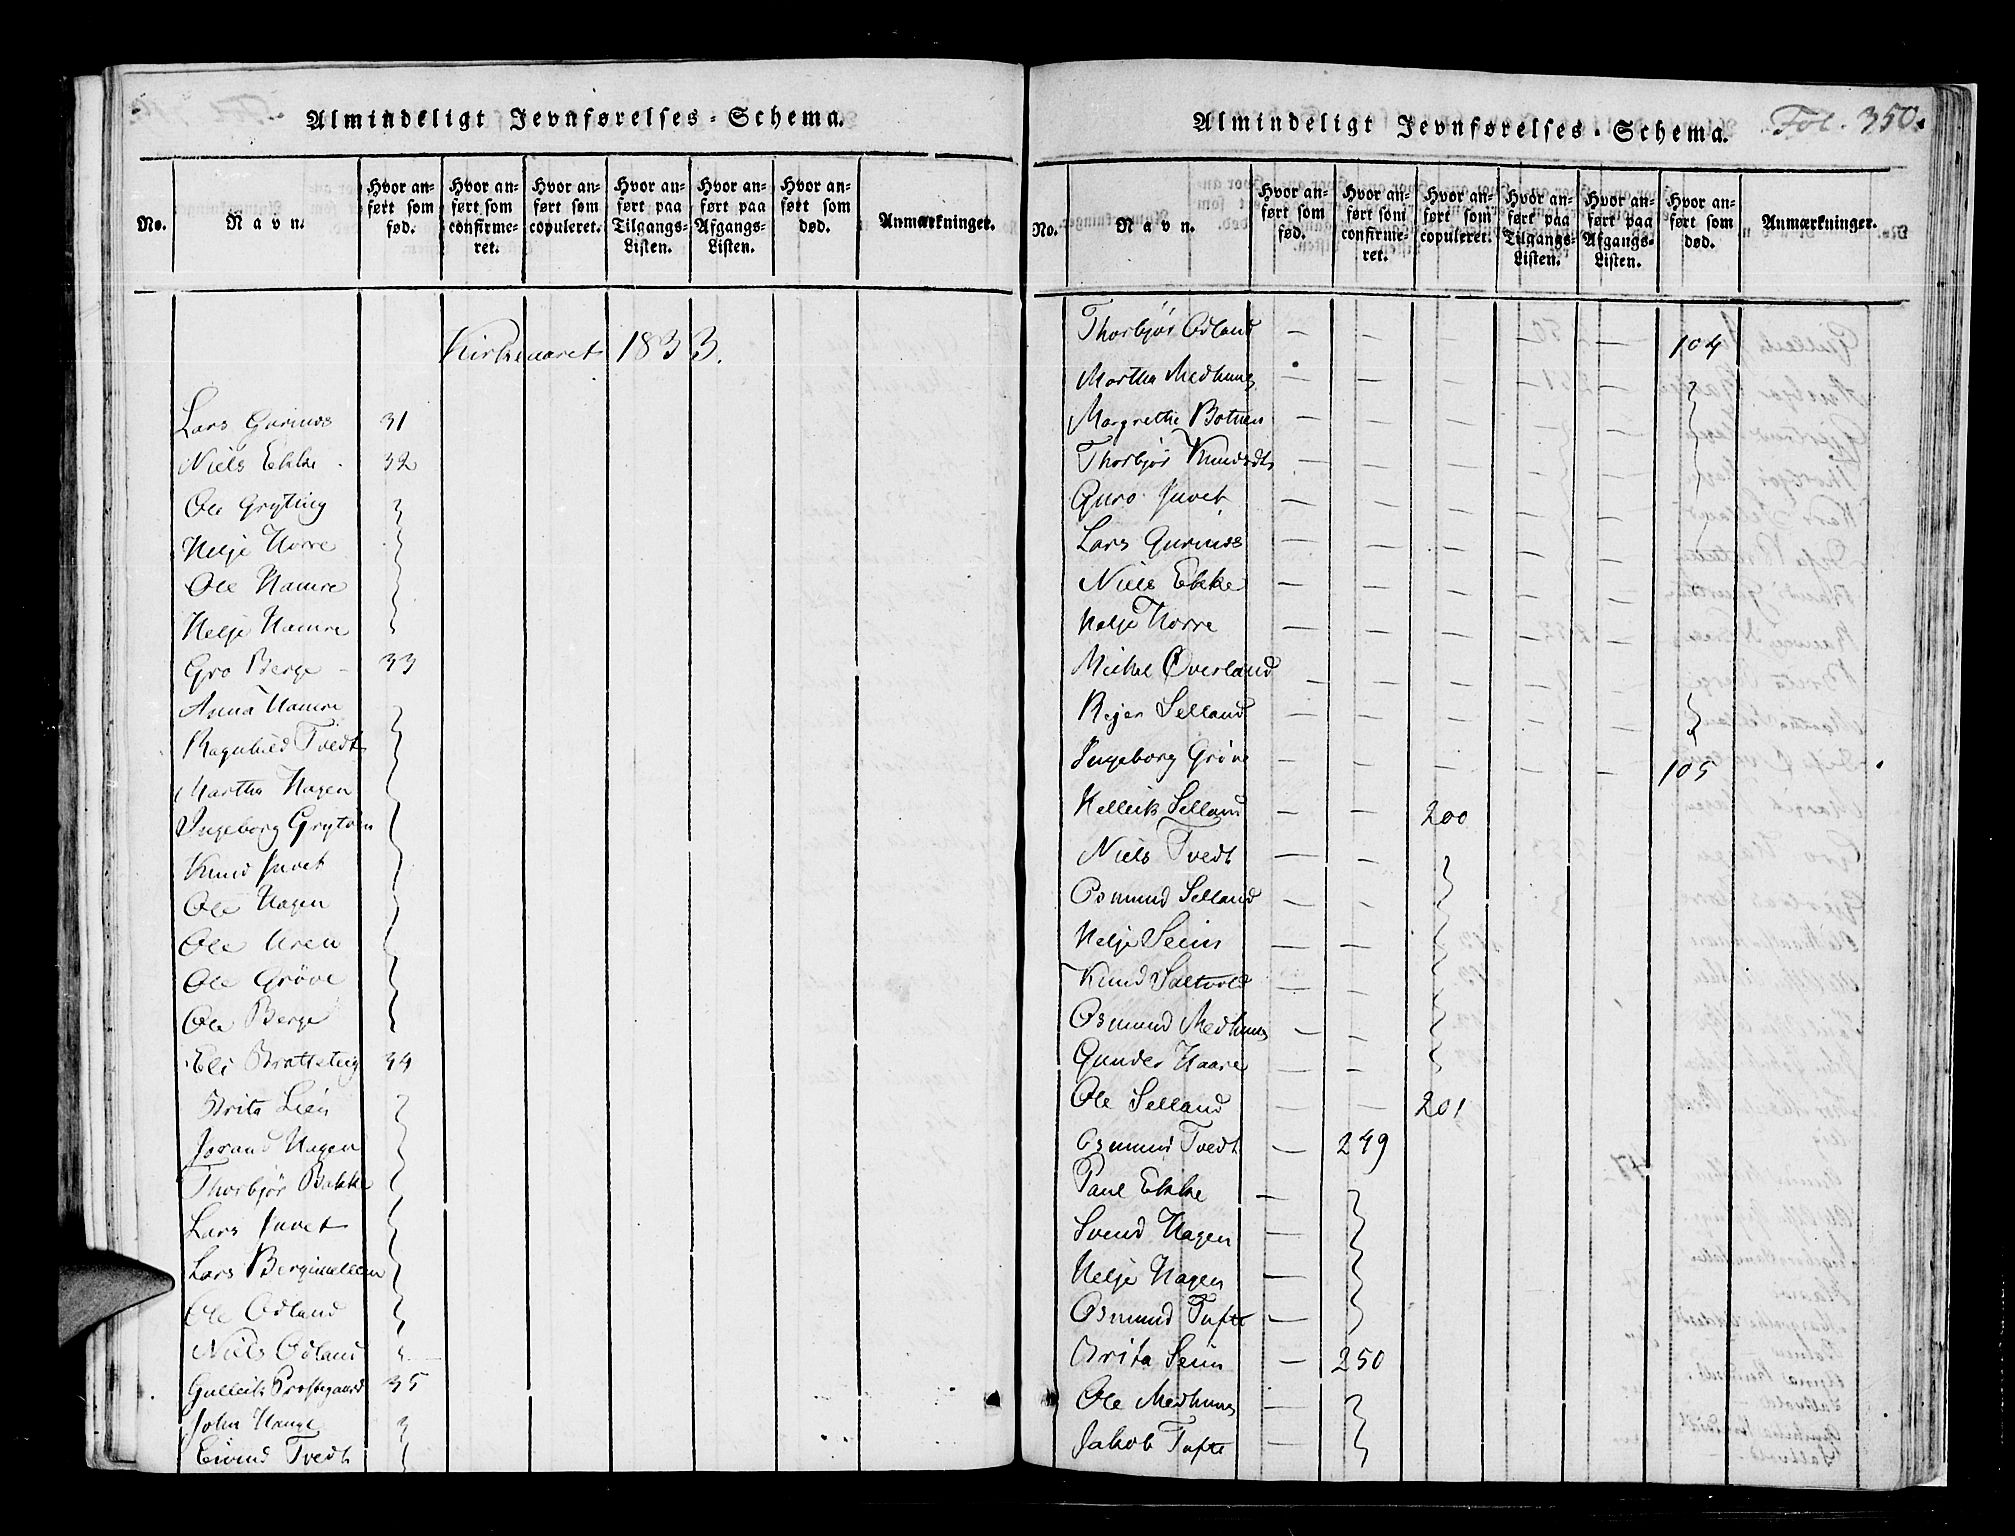 Almindeligt Jevnførelses-Schema.
No.
Navn.
Hvor anført som fød.
Hvor anført som confirmeret.
Hvor anført søm copuleret.
Hvor anført paa Tilgangs-Listen.
Hvor anført paa Afgangs-Listen.
Hvor anført som død.
Anmærkninger.
Kirkeaaret 1833.
Lars Gurinos 31
Niels Ekke 32
Ole Gryting
Helje Horre
Ole Hamre
Helje Hamre
Gro Berge 33
Anna Hamre
Ragnhild Tvedt
Martha Hagen
Ingeborg
Knud Juvet
Ole Hagen
Ole Uren
Ole Grøve
Ole Berge
Eli Bratteteig 34
Brita Lien
Jorand Hagen
Thorbjør Bakke
Lars Juvet
Lars Bergimellem
Ole Odland
Niels Odland
Gulleik Prostegaard 35
John Hauge
Eivind Tvedt
Almindeligt Jevnførelses-Schema. Fol. 350.
No.
Navn.
Hvor anført som fød.
Hvor anført som confirmeret.
Hvor anført som copuleret.
Hvor anført paa Tilgangs-Listen.
Hvor anført paa Afgangs-Listen.
Hvor anført som død.
Anmærkninger.
Thorbjør Odland — — — — — 104
Martha Medhuus
Margrethe Botnen — — — — —
Thorbjør Knudsdt — — — — —
Guro Juvet — — — — —
Lars Gurinos — — — — —
Niels Ekke — — — — —
Helje Horre — — — — —
Michel Overland — — — — —
Rejer Selland — — — — —
Ingeborg Grøve — — — — — 105
Helleik Selland — — 200
Niels Tvedt — —
Osmund Selland — —
Helje Seim — —
Knud Saltvold — —
Osmund Medhuus — —
Gunder Haare — —
Ole Selland — — 201
Osmund Tvedt — 249
Paul Ekke —
Svend Hagen —
Helje Hagen —
Osmund Tufte —
Brita Seim — 250
Ole Medhuus —
Jakob Tufte —